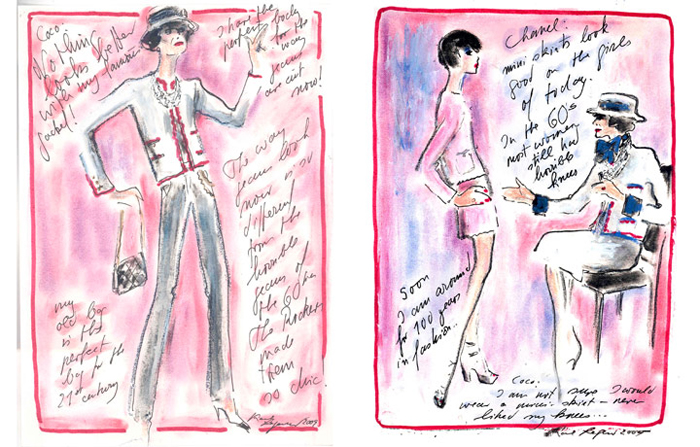 Coco
Nothing
looks better
with my famous
jacket!
I have the
perfect body
for the
way
jeans
are cut
now!
The way
jeans look
now is so
different
from the
horrible
jeans of
the 60ties
The Rockers
made
them
so chic.
my
old bag
is the
perfect
bag for the
21st century
2009
Chanel:
mini skirts look
good on the girls
of today.
In the 60's
most women
still had
horrible
knees
Soon
I am around
for 100 years
in fashion...
Coco:
I am not sure I would
wear a mini-skirt - never
liked my knees...
2009